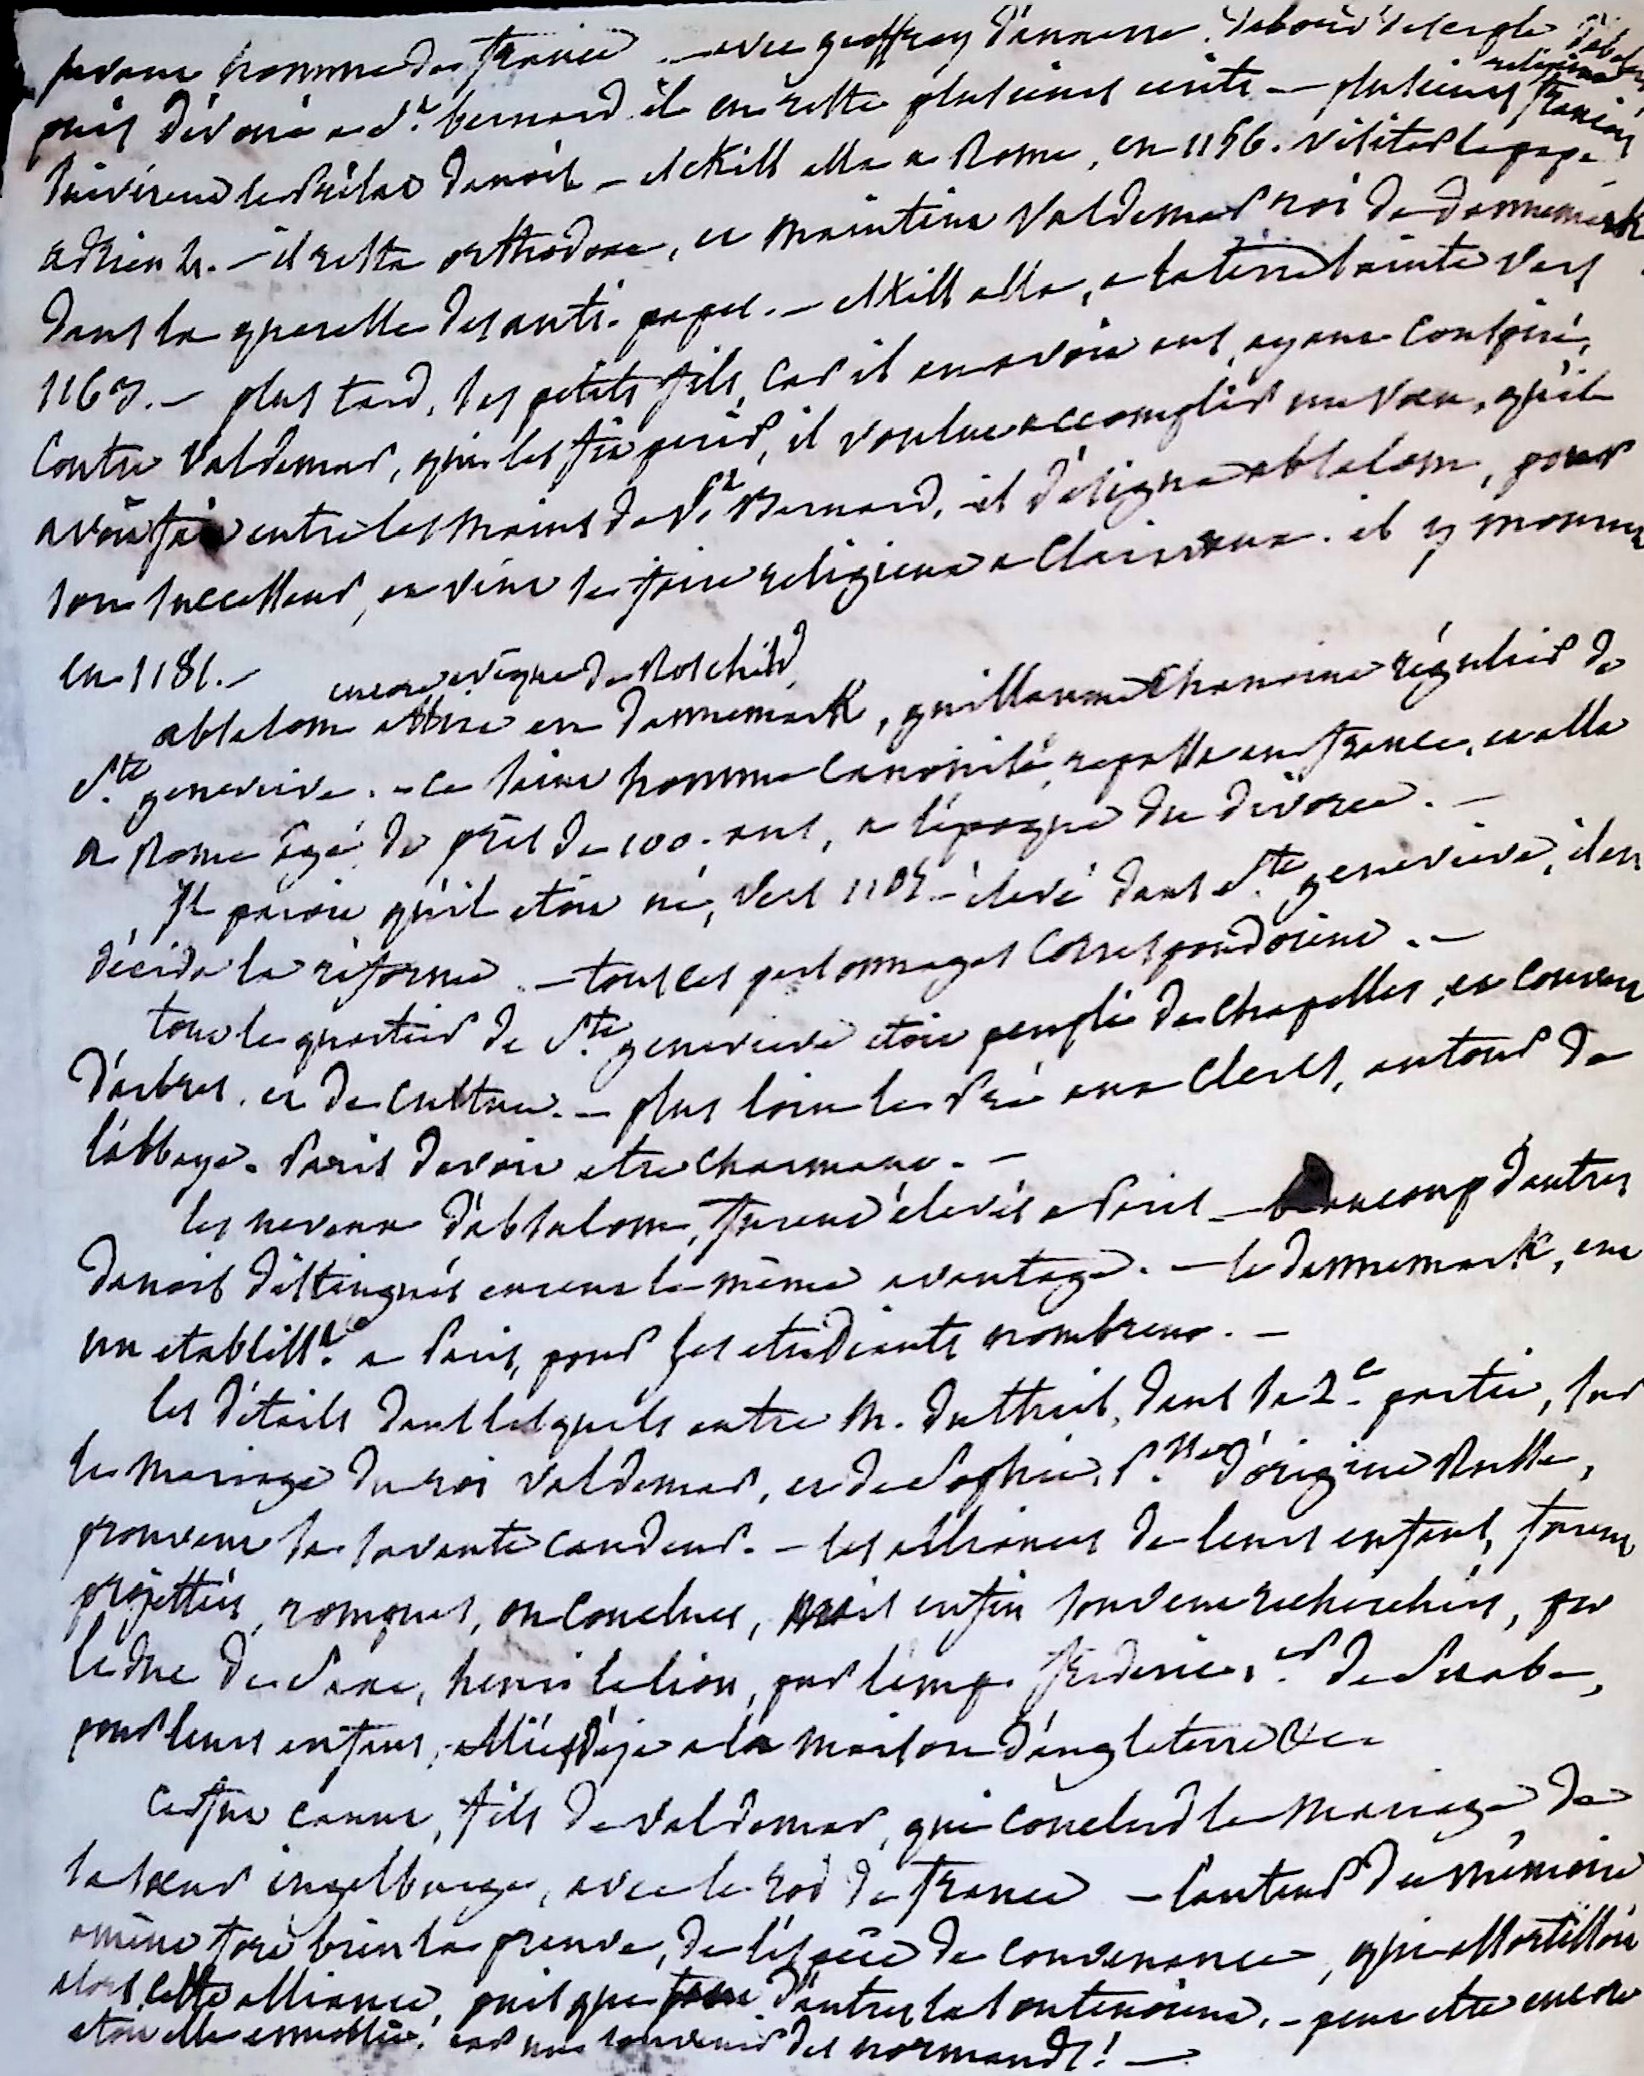 savant homme de france — avec geoffroy d'auxerre. d'abord disciple d'abelard
puis dévoué a St. bernard. il en reste plusieurs écrits — plusieurs religieux françois
suivirent le prélat danois — eskill alla a Rome, en 1156. visiter le pape
adrien 4. — il resta orthodoxe, et maintint Valdemar roi de dannemark
dans la querelle des anti-papes. — eskill alla, a la terre sainte vers
1163. — plus tard, ses petits fils, car il en avoit eus, ayant conspiré,
contre Valdemar, qui les fit périr, il voulut accomplir un vœu, qu'il
avoit fait entre les mains de St. Bernard, il désigna absalom, pour
son successeur, et vint se faire religieux a Clairvaux. il y mourut
en 1181. —
encore evêque de Roschild
absalom attira en dannemark, guillaume chanoine régulier de
Ste. genevieve. — ce saint homme canonisé, repassa en france, et alla
a Rome agé de près de 100. ans, a l'époque du divorce. —
Il paroit qu'il etoit né, vers 1105 — élevé dans Ste. genevieve, il en
décida la réforme. — tous ces personnages correspondoient. —
tout le quartier de Ste. genevieve etoit peuplé de chapelles, et couvert
d'arbres. et de culture. — plus loin le Pré aux Clercs, autour de
l'abbaye. Paris devoit etre charmant. —
les neveux d'absalom, furent élevés a Paris — beaucoup d'autres
danois distingués eurent le même avantage. — le dannemark, eut
un etablisst. a Paris, pour ses etudiants nombreux. —
les détails dans lesquels entre M. dutheil, dans sa 2e. partie, sur
le mariage du roi Valdemar, et de Sophie, Psse d'origine Russe,
prouvent sa savante candeur. — les alliances de leurs enfants, furent
projettées, rompues, ou conclues, mais enfin souvent recherchées, par
le duc de Saxe, henri le lion, par l'emp. frederic 1er. de Suabe,
pour leurs enfants, alliés déja a la maison d'angleterre &c.
Ce fut canut, fils de valdemar, qui conclud le mariage de
sa sœur ingelburge, avec le roi de france — l'auteur du mémoire
amène fort bien la preuve, de l'espèce de convenance, qui assortissoit
alors cette alliance, puisque d'autres la soutenoient. — peut etre encore
etoit elle ennoblie, par un souvenir des normands! —